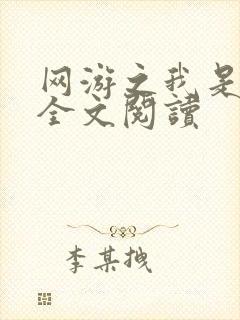 网游之我是
全文閱讀
李某拽